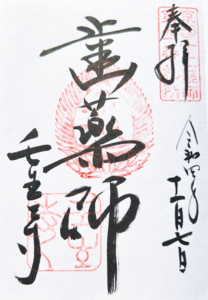 奉拝
令和四年
十一月七日
歯薬師
壬生寺